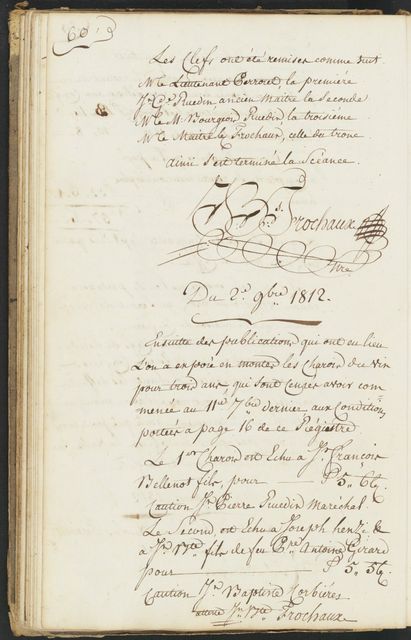 60
Les Clefs ont été remises comme suit
Mr le Lieutenant Perroud la première
Jn Ge Ruedin ancien Maitre la Seconde
Mr le M. Bourgeois Ruedin la troisième
Mr le Maitre Frochaux, celle du tronc
ainsi s'est terminé la Scéance.
Frochaux
Du 2e 9bre 1812.
Ensuite des publications qui ont eu lieu
L'on a exposé en montes les Charois du vin
pour trois ans, qui sont censés avoir com
mencé au 11e 9bre dernier aux Conditions
portées a page 16 de ce Régistre
Le 1er Charois est Echu a Js François
Bellenot fils, pour
Caution Jn Pierre Ruedin Maréchal.
Le Second est Echu a Joseph &
a Jn Bte fils de feu Antoine Girard
pour
Caution Jn Baptiste Corbières
atteste Jn Bte Frochaux